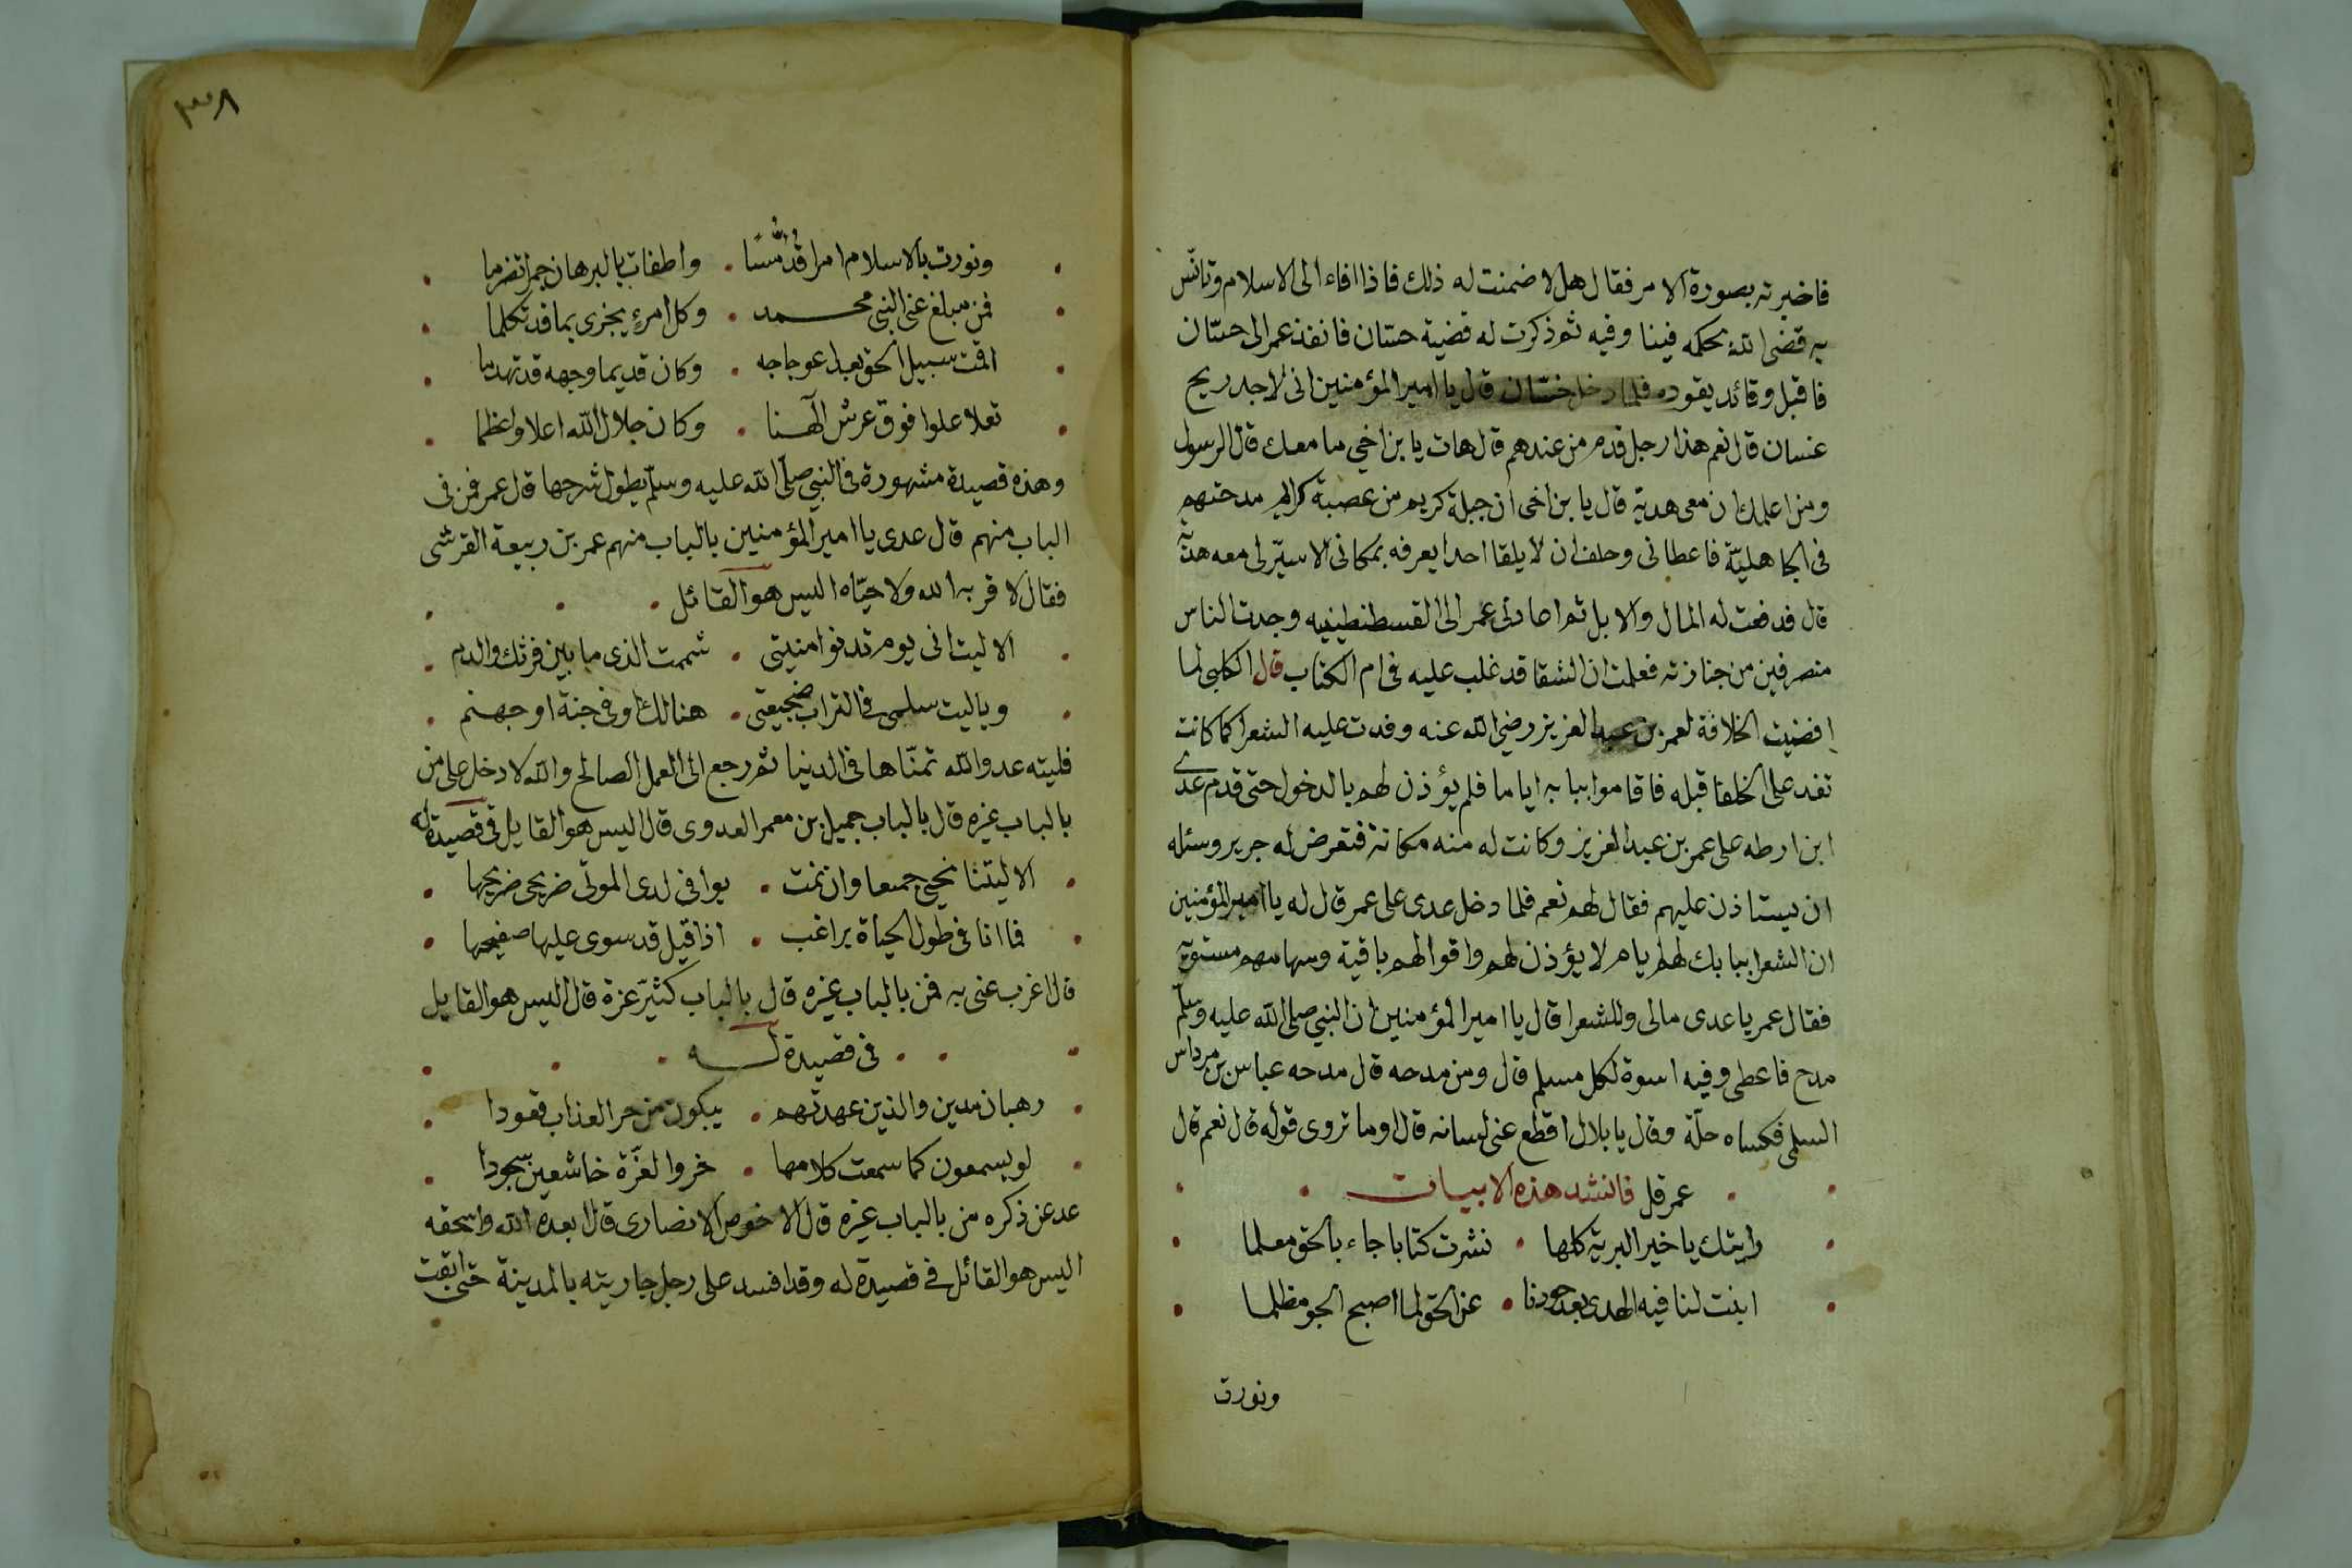 فاخبرته بصورة الامر فقال هلا ضمنت له ذلك فاذا افاء الى الاسلام وتانس
به قضى الله بحكمه فينا وفيه ثم ذكرت له قضية حسّان فانفذ عمر الى حسّان
فاقبل وقائد يقوده فلما دخل حسّان قال يا امير المؤمنين انى لاجد ريح
غسان قال نعم هذا رجل قدم من عندهم قال هات يا بن اخي ما معك قال الرسول
ومن اعلمك ان معى هدية قال يا بن اخى ان جبلة كريم من عصبة كرام مدحتهم
فى الجاهليّة فاعطانى وحلف ان لا يلقا احدا يعرفه بمكانى الا سيّر لى معه هديّة
قال فدفعت له المال والابل ثم اعادنى عمر الى القسطنطينيه وجدت الناس
منصرفين من جنازته فعلمت ان الشقا قد غلب عليه فى ام الكتاب قال الكلبى لما
افضيت الخلافة لعمر بن عبد العزيز رضي الله عنه وفدت عليه الشعرا كما كانت
تفد على الخلفا قبله فاقاموا ببابه اياما فلم يؤذن لهم بالدخول حتى قدم عدى
ابن ارطه على عمر بن عبد العزيز وكانت له منه مكانة فتعرض له جرير وسئله
ان يستاذن عليهم فقال لهم نعم فلما دخل عدى على عمر قال له يا امير المؤمنين
ان الشعرا ببابك لهم ايام لا يؤذن لهم واقوالهم باقية وسهامهم مستويّه
فقال عمر يا عدى مالى وللشعرا قال يا امير المؤمنين ان النبي صلى الله عليه وسلّم
مدح فاعطى وفيه اسوة لكل مسلم قال ومن مدحه قال مدحه عباس بن مرداس
السلمى فكساه حلّة وقال يا بلال اقطع عنى لسانه قال اوما تروى قوله قال نعم قال
عمر قل فانشد هذه الابيات
رايتك يا خير البريّه كلها • نشرت كتابا جاء بالحق معلما
ابنت لنا فيه الهدى بعد جورنا • عن الحق لما اصبح الجو مظلما
ونورت
٣٣٨
ونورت بالاسلام امرا قد • واطفات بالبرهان جمرا تضرما
فمن مبلغ عنى النبى محمد • وكل امرئ يجزى بما قد تكلما
اقمت سبيل الحق بعد اعوجاجه • وكان قديما وجهه قد تهدما
تعلا علوا فوق عرش الٓهنا • وكان جلال الله اعلا واعظما
وهذه قصيدة مشهورة فى النبي صلى الله عليه وسلّم يطول شرحها قال عمر فمن فى
الباب منهم قال عدى يا امير المؤمنين بالباب منهم عمر بن ربيعة القرشى
فقال لا قربه الله ولا حيّاه اليس هو القائل
الا ليت انى يوم تدنوا منيتى • شممت الذى ما بين فرثك والدم
ويا ليت سلمى فى التراب ضجيعتى • هنالك او فى جنة او جهنم
فليته عدو الله تمنّاها فى الدنيا ثم رجع الى العمل الصالح والله لا دخل على من
بالباب غيره قال بالباب جميل بن معمر العدوى قال اليس هو القايل فى قصيدة له
الا ليتنا نحيى جميعا وان نمت • يوافى لدى الموتى ضريحى ضريحها
فما انا فى طول الحياة براغب • اذا قيل قد سوى عليها صفيحها
قال اغرب عنى به فمن بالباب غيره قال بالباب كثيّر عزة قال اليس هو القايل
فى قصيدة له
رهبان مدين والذين عهدتهم • يبكون من حر العذاب قعودا
لو يسمعون كما سمعت كلامها • خروا لعزّة خاشعين سجودا
عد عن ذكره من بالباب غيره قال الاخوص الانصارى قال ابعده الله واسحقه
اليس هو القائل فى قصيدة له وقد افسد على رجل جاريته بالمدينة حتى ابقت